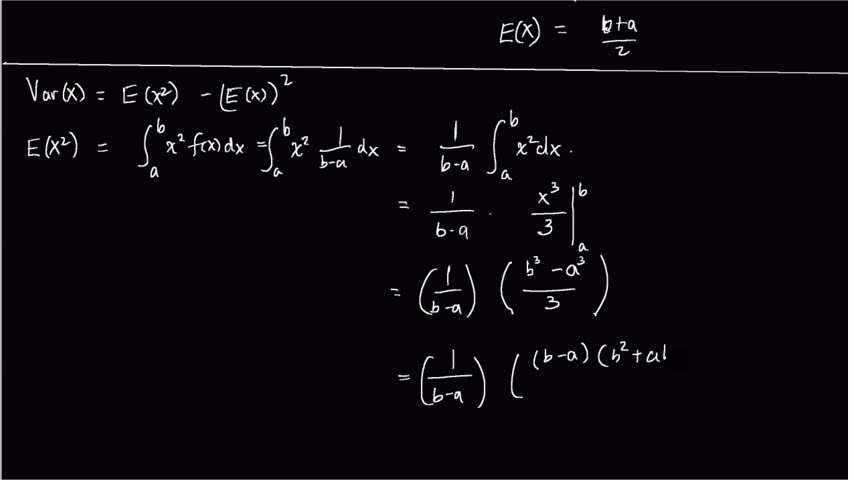 E(X) = b+a/2
Var(x) = E(x²) - (E(x))²
E(X²) = ∫_a^b x² f(x) dx = ∫_a^b x² 1/b-a dx = 1/b-a ∫_a^b x² dx.
= 1/b-a · x³/3 |_a^b
= (1/b-a) (b³ - a³/3)
= (1/b-a) ( (b-a) (b² + ab